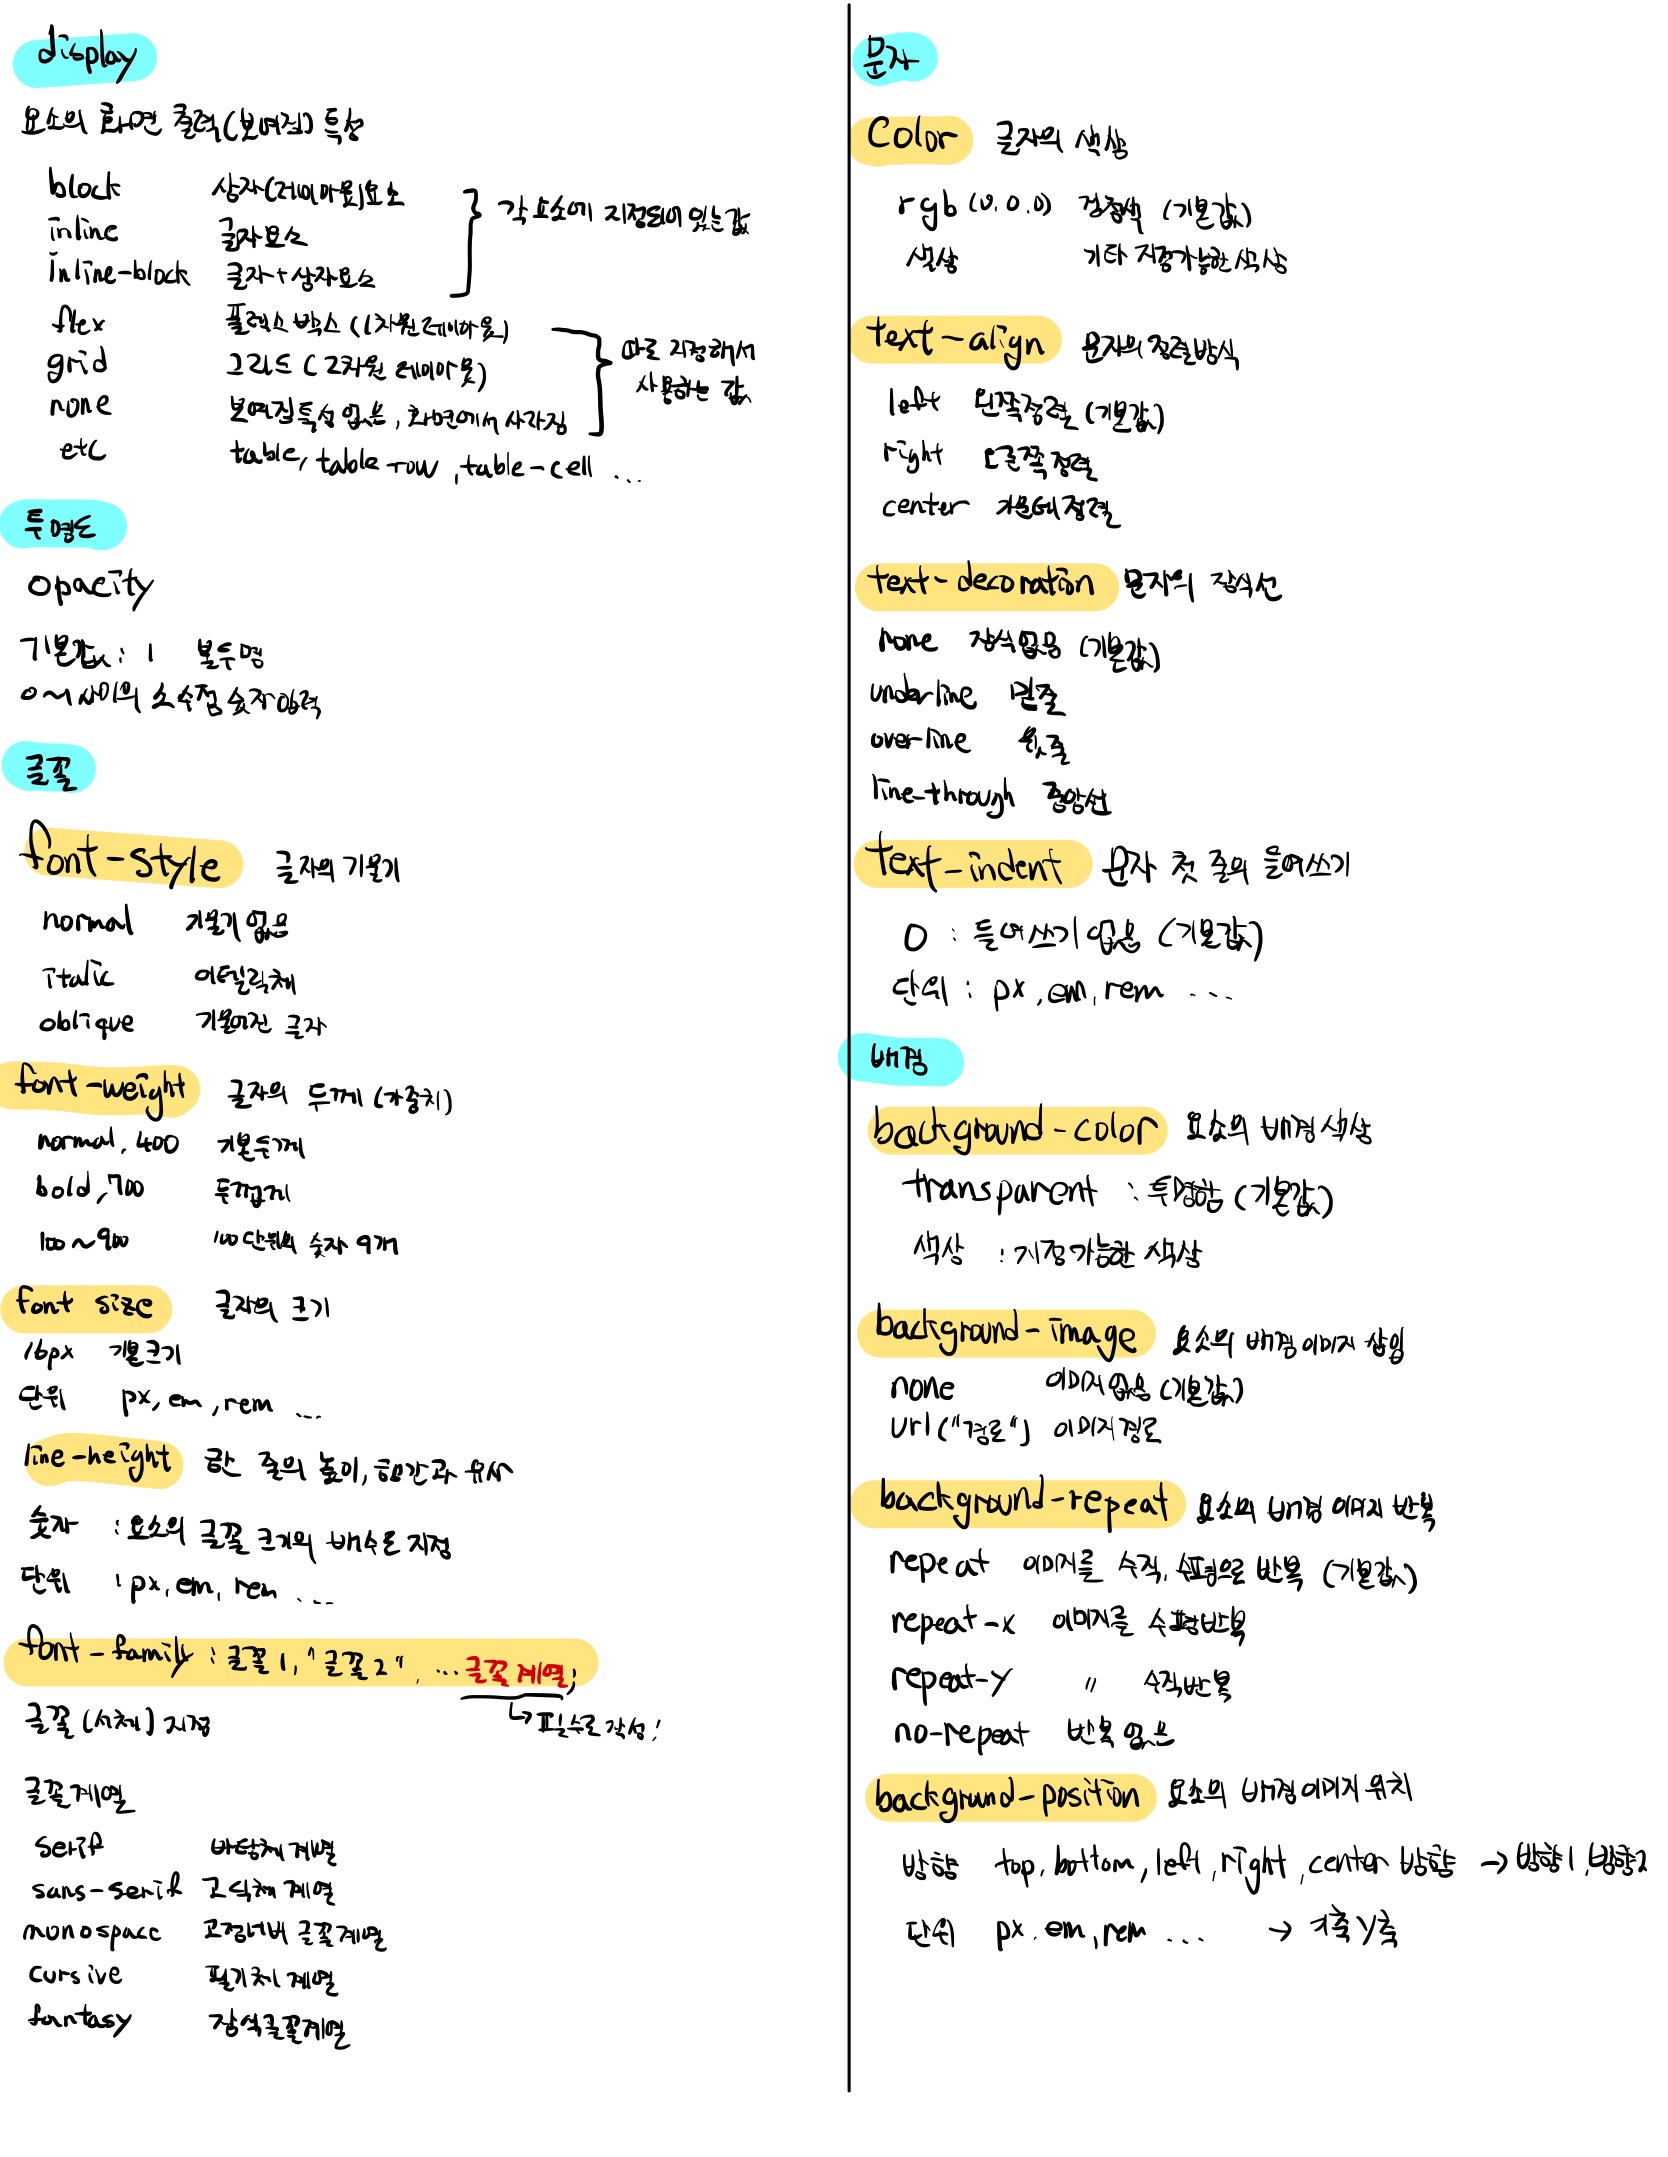 display
요소의 화면 출력(보여짐) 특성
block 상자(레이아웃)요소
inline 글자요소
inline-block 글자+상자요소
각 요소에 지정되어 있는 값
flex 플렉스 박스 (1차원 레이아웃)
grid 그리드 (2차원 레이아웃)
none 보여짐 특성 없음, 화면에서 사라짐
따로 지정해서
사용하는 값
etc table, table-row, table-cell ...
투명도
opacity
기본값 : 1 불투명
0~1사이의 소수점 숫자 입력
글꼴
font-style 글자의 기울기
normal 기울기 없음
italic 이텔릭체
oblique 기울어진 글자
font-weight 글자의 두께 (가중치)
normal, 400 기본두께
bold, 700 두껍게
100~900 100단위의 숫자 9개
font size 글자의 크기
16px 기본크기
단위 px, em, rem ...
line-height 한 줄의 높이, 행간과 유사
숫자 : 요소의 글꼴 크기의 배수로 지정
단위 : px, em, rem ...
font-family : 글꼴1, "글꼴2", ... 글꼴계열;
↳ 필수로 작성!
글꼴(서체) 지정
글꼴계열
serif 바탕체 계열
sans-serif 고딕체 계열
monospace 고정너비 글꼴계열
cursive 필기체 계열
fantasy 장식글꼴계열
문자
color 글자의 색상
rgb (0.0.0) 검정색 (기본값)
색상 기타 지정가능한 색상
text-align 문자의 정렬방식
left 왼쪽정렬 (기본값)
right 오른쪽 정렬
center 가운데 정렬
text-decoration 문자의 장식선
none 장식없음 (기본값)
underline 밑줄
overline 윗줄
line-through 중앙선
text-indent 문자 첫 줄의 들여쓰기
0 : 들여쓰기 없음 (기본값)
단위 : px, em, rem ...
배경
background-color 요소의 배경 색상
transparent : 투명함 (기본값)
색상 : 지정가능한 색상
background-image 요소의 배경 이미지 삽입
none 이미지 없음 (기본값)
url("경로") 이미지 경로
background-repeat 요소의 배경 이미지 반복
repeat 이미지를 수직, 수평으로 반복 (기본값)
repeat-x 이미지를 수평반복
repeat-y 〃 수직반복
no-repeat 반복 없음
background-position 요소의 배경이미지 위치
방향 top, bottom, left, right, center 방향 → 방향1, 방향2
단위 px, em, rem ... → x축 y축